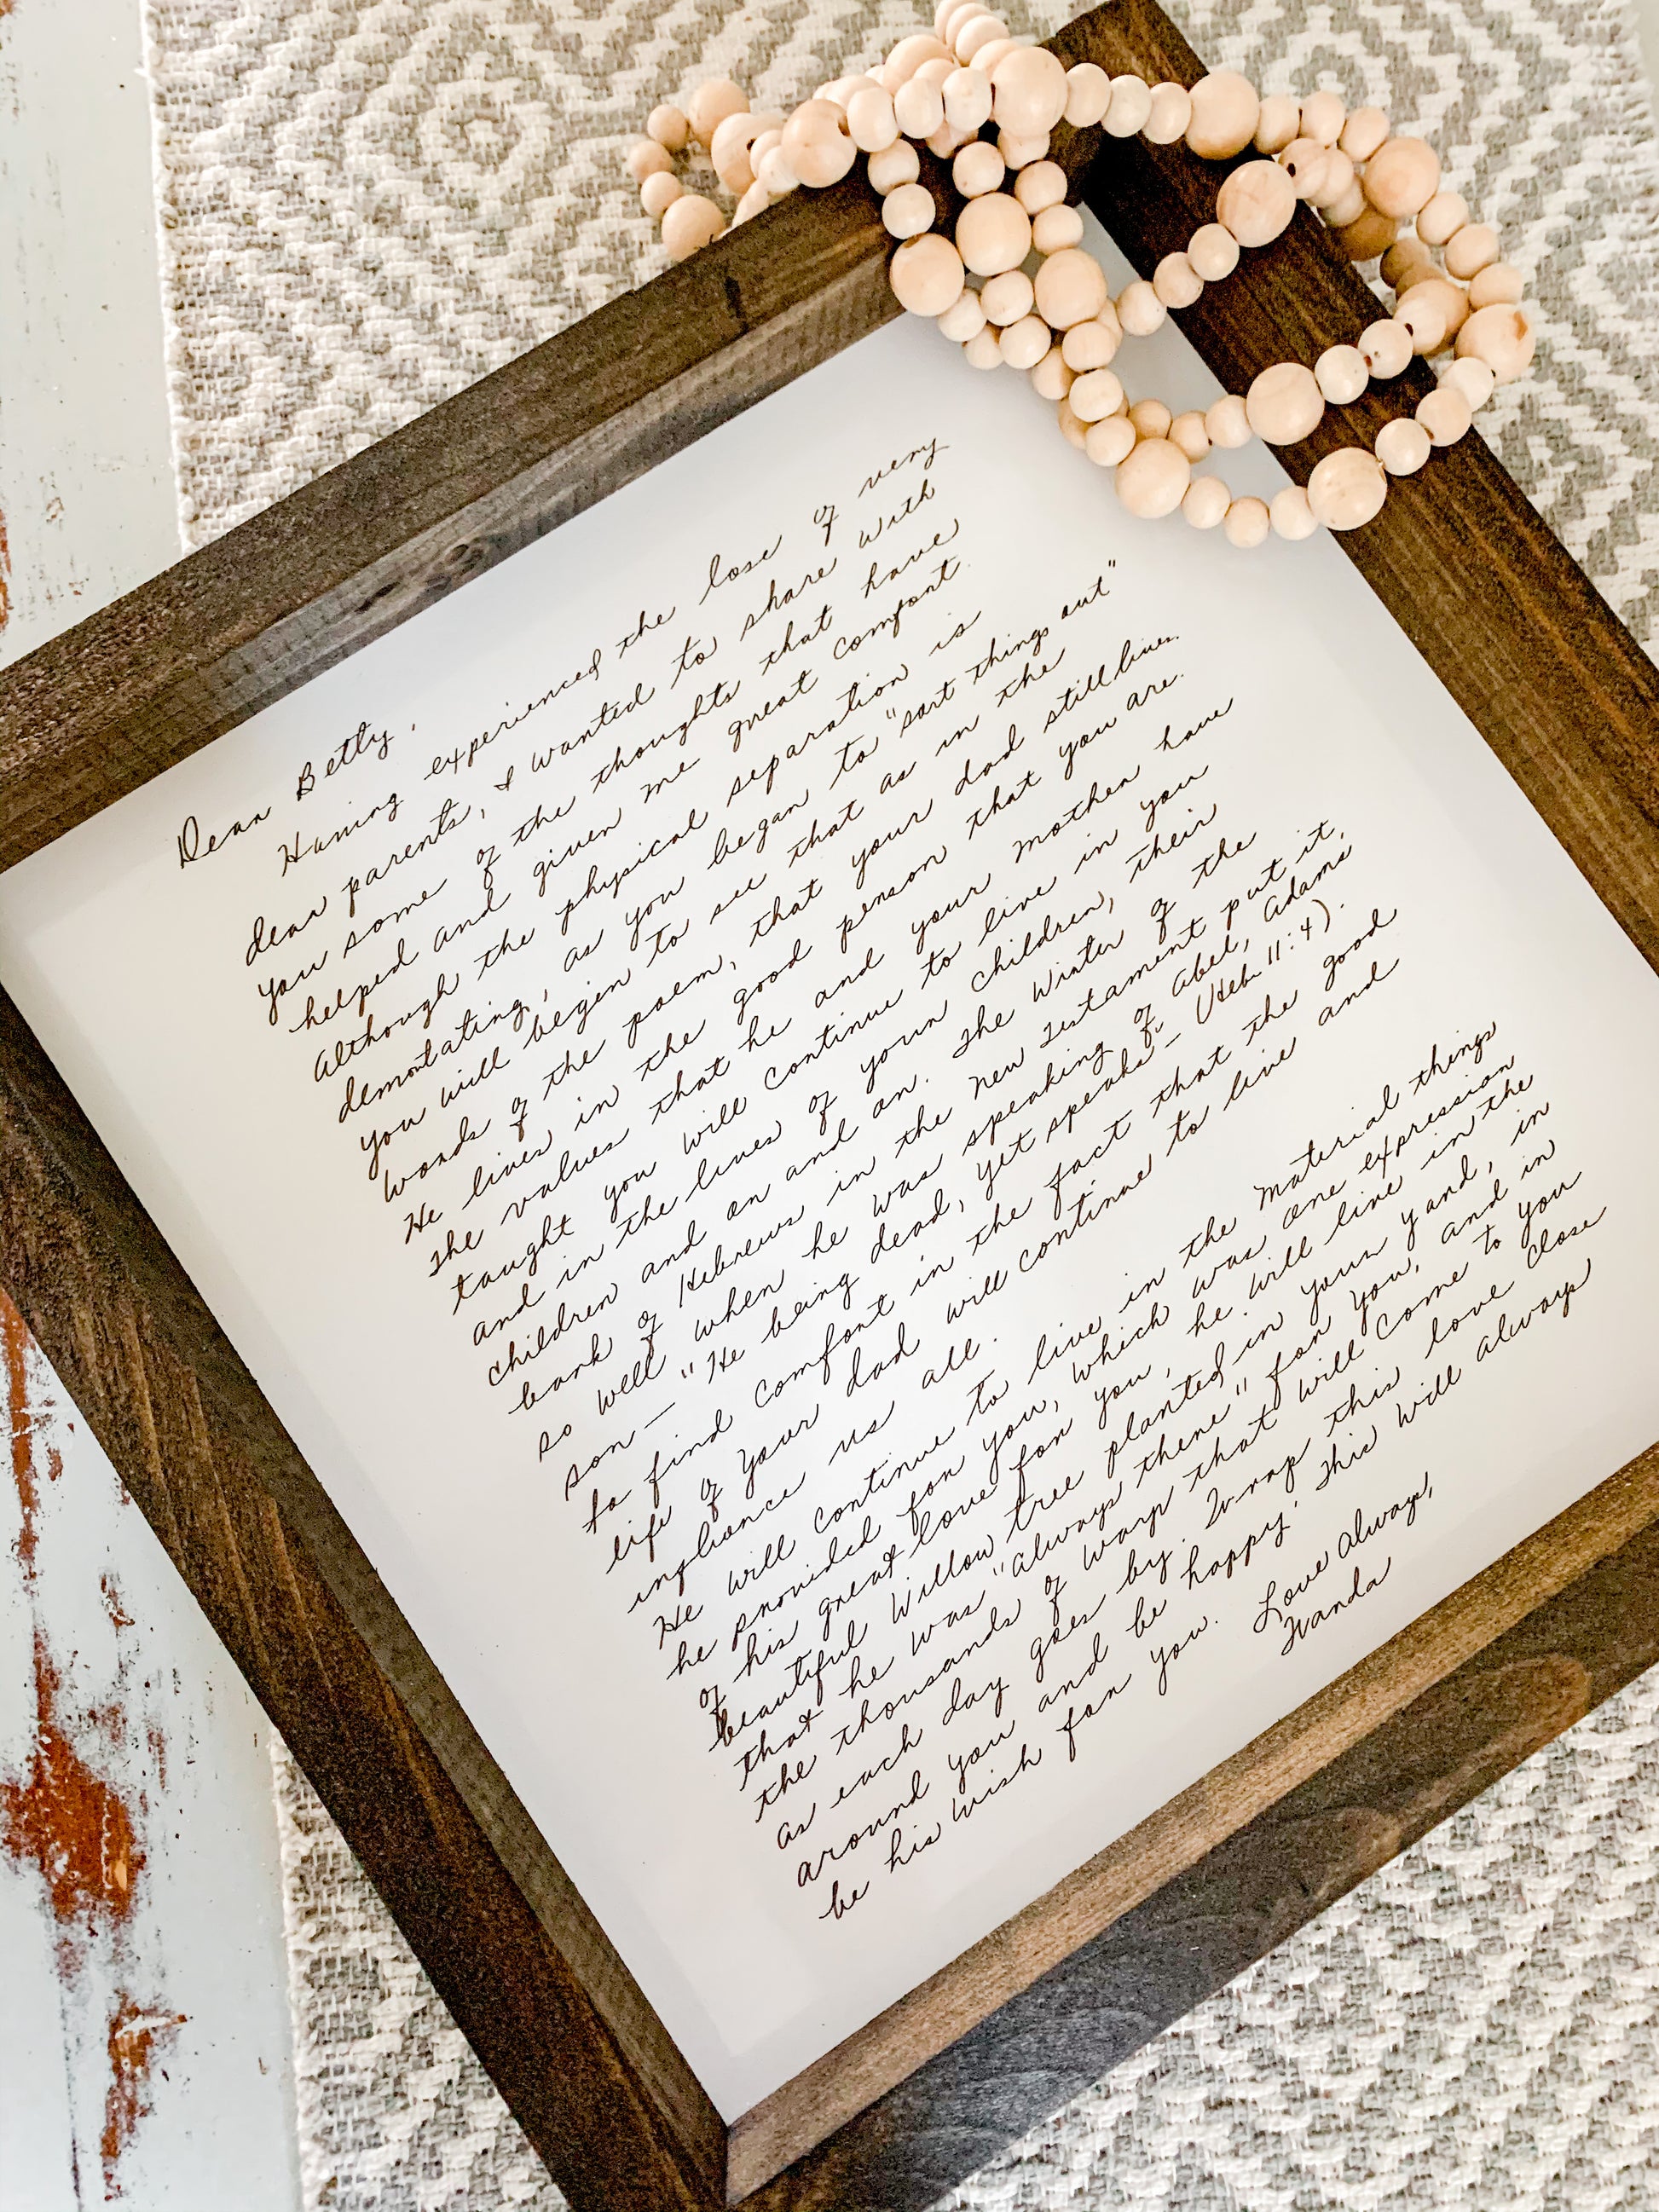 Dear Betty,
Having experienced the lose of very
dear parents, I wanted to share with
you some of the thoughts that have
helped and given me great comfort.
Although the physical separation is
devastating, as you began to "sort things out"
you will begin to see that as in the
words of the poem, that your dad still lives.
He lives in the good person that you are.
The values that he and your mother have
taught you will continue to live in you
and in the lives of your children, their
children and on and on. The Writer of the
book of Hebrews in the New Testament put it,
so well when he was speaking of Abel, Adams
son— "He being dead, yet speaks"— (Heb. 11:4).
to find comfort in the fact that the good
life of your dad will continue to live and
influence us all.
He will continue to live in the material things
he provided for you, which was one expression
of his great love for you, he will live in the
beautiful Willow tree planted in your yard, in
that he was "always there" for you, and in
the thousands of ways that will come to you
as each day goes by. Wrap this love close
around you and be happy. This will always
be his wish for you.
Love Always,
Wanda